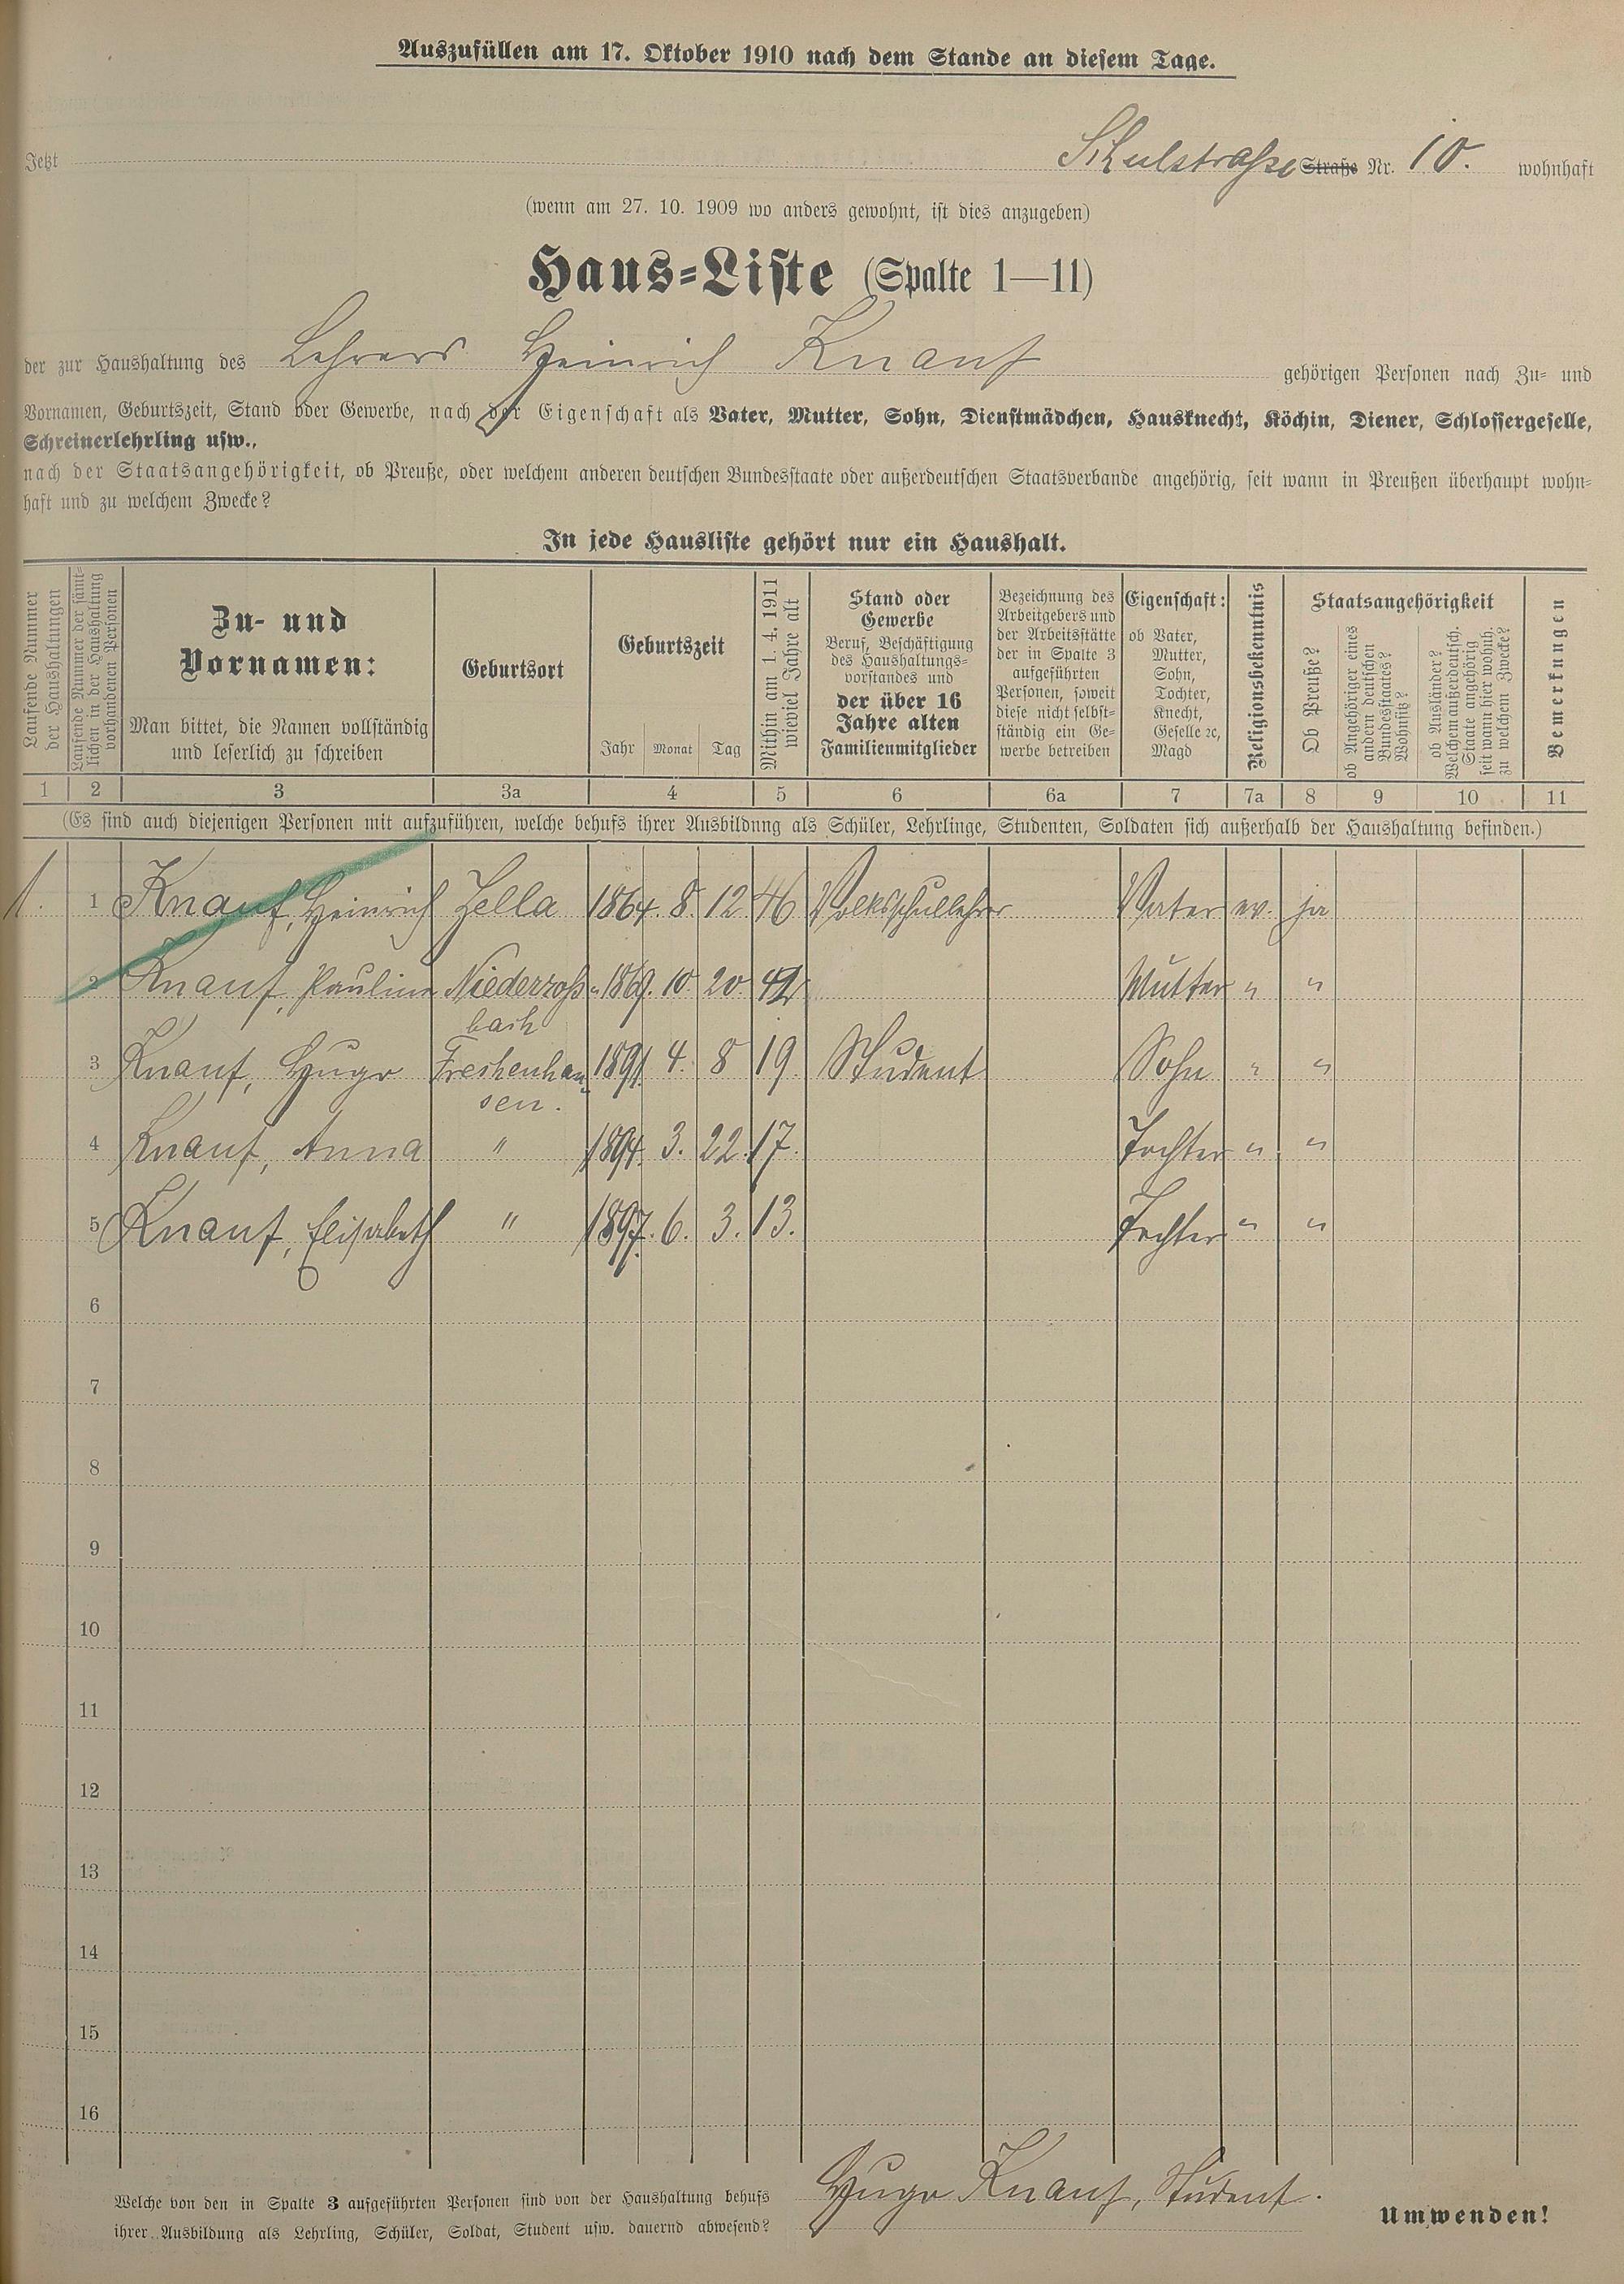 Auszufüllen am 17. Oktober 1910 nach dem Stande an diesem Tage.
Jetzt Schulstraße Straße Nr. 10. wohnhaft
(wenn am 27. 10. 1909 wo anders gewohnt, ist dies anzugeben)
Haus-Liste (Spalte 1—11)
der zur Haushaltung des Lehrers Heinrich Knauf gehörigen Personen nach Zu- und
Vornamen, Geburtszeit, Stand oder Gewerbe, nach der Eigenschaft als Vater, Mutter, Sohn, Dienstmädchen, Hausknecht, Köchin, Diener, Schlossergeselle,
Schreinerlehrling usw.,
nach der Staatsangehörigkeit, ob Preuße, oder welchem anderen deutschen Bundesstaate oder außerdeutschen Staatsverbande angehörig, seit wann in Preußen überhaupt wohn-
haft und zu welchem Zwecke?
In jede Hausliste gehört nur ein Haushalt.
Laufende Nummer
der Haushaltungen
Laufende Nummer der sämt-
lichen in der Haushaltung
vorhandenen Personen
Zu- und
Vornamen:
Man bittet, die Namen vollständig
und leserlich zu schreiben
Geburtsort
Geburtszeit
Jahr Monat Tag
Mithin am 1. 4. 1911
wieviel Jahre alt
Stand oder
Gewerbe
Beruf, Beschäftigung
des Haushaltungs-
vorstandes und
der über 16
Jahre alten
Familienmitglieder
Bezeichnung des
Arbeitgebers und
der Arbeitsstätte
der in Spalte 3
aufgeführten
Personen, soweit
diese nicht selbst-
ständig ein Ge-
werbe betreiben
Eigenschaft:
ob Vater,
Mutter,
Sohn,
Tochter,
Knecht,
Geselle ꝛc,
Magd
Religionsbekenntnis
Staatsangehörigkeit
Ob Preuße?
ob Angehöriger eines
andern deutschen
Bundesstaates?
Wohnsitz?
ob Ausländer?
Welchem außerdeutsch.
Staate angehörig
seit wann hier wohnh.
zu welchen Zwecke?
Bemerkungen
1 2 3 3a 4 5 6 6a 7 7a 8 9 10 11
(Es sind auch diejenigen Personen mit aufzuführen, welche behufs ihrer Ausbildung als Schüler, Lehrlinge, Studenten, Soldaten sich außerhalb der Haushaltung befinden.)
1. 1 Knauf, Heinrich Zella 1864. 8. 12 46 Volksschullehrer Vater ev. ja
2 Knauf, Pauline Niederroß- 1869. 10. 20. Mutter " "
bach
3 Knauf, Hugo Frechenhau- 1891 4. 8 19. Student Sohn " "
sen.
4 Knauf, Anna " 1894. 3. 22. 17. Tochter " "
5 Knauf, Elisabeth " 1897. 6. 3. 13. Tochter " "
6
7
8
9
10
11
12
13
14
15
16
Welche von den in Spalte 3 aufgeführten Personen sind von der Haushaltung behufs
ihrer Ausbildung als Lehrling, Schüler, Soldat, Student usw. dauernd abwesend?
Hugo Knauf, Student.
Umwenden!